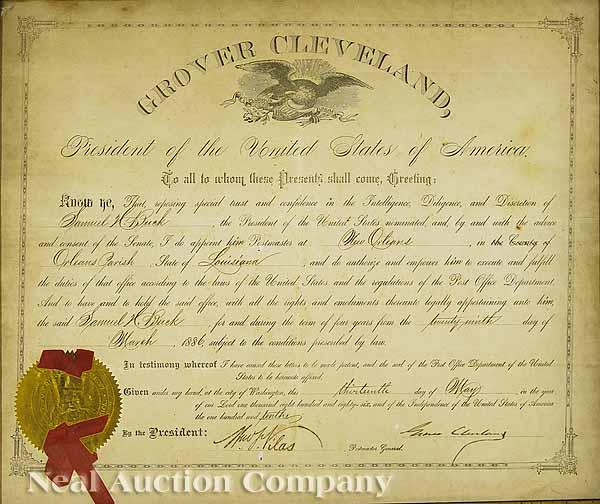 GROVER CLEVELAND,
President of the United States of America.
To all to whom these Presents shall come, Greeting:
Know ye, That, reposing special trust and confidence in the Intelligence, Diligence, and Discretion of
Samuel H Buck, the President of the United States nominated, and, by and with the advice
and consent of the Senate, I do appoint him Postmaster at New Orleans, in the County of
Orleans Parish State of Louisiana, and do authorize and empower him to execute and fulfill
the duties of that office according to the laws of the United States and the regulations of the Post Office Department
And to have and to hold the said office, with all the rights and emoluments thereunto legally appertaining unto him,
the said Samuel H Buck, for and during the term of four years from the twenty-ninth day of
March, 1886, subject to the conditions prescribed by law.
In testimony whereof I have caused these letters to be made patent, and the seal of the Post Office Department of the United
States to be hereunto affixed.
Given under my hand, at the city of Washington, this thirteenth day of May in the year
of our Lord one thousand eight hundred and eighty-six, and of the Independence of the United States of America
the one hundred and tenth.
By the President:
Wm F Vilas
Grover Cleveland
Postmaster General.
Neal Auction Company